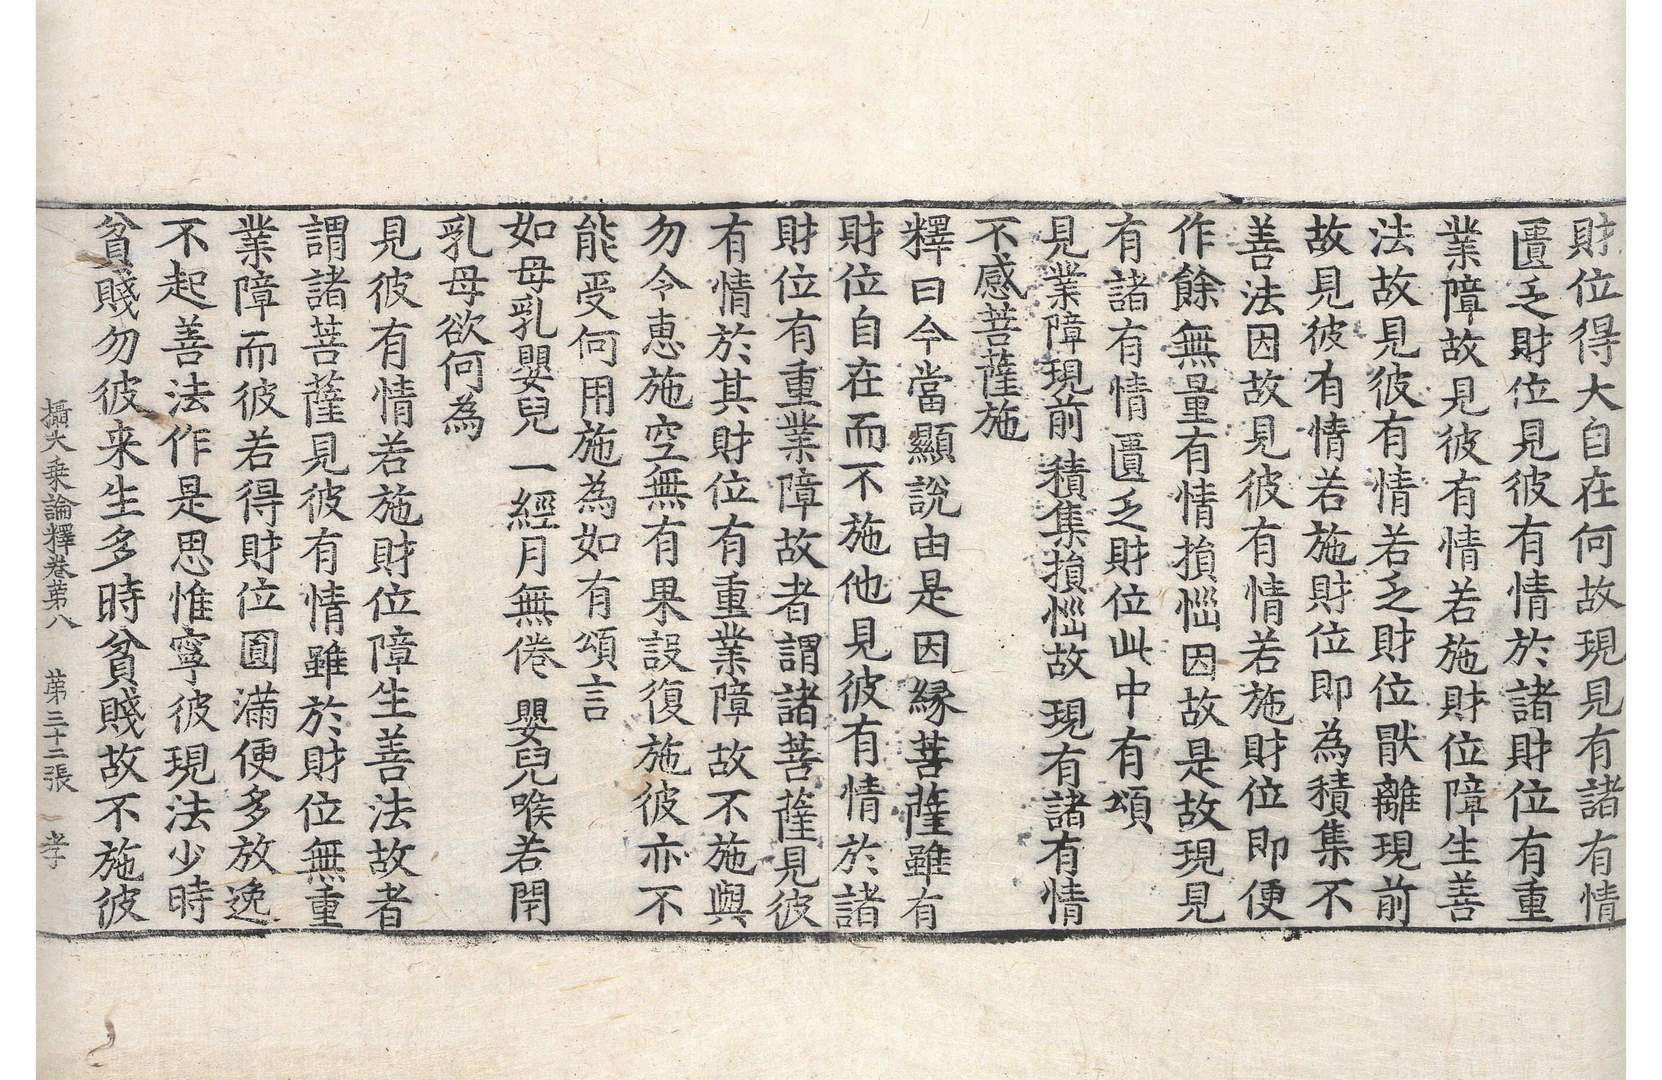 財位得大自在何故現見有諸有情
匱乏財位見彼有情於諸財位有重
業障故見彼有情若施財位障生善
法故見彼有情若乏財位猒離現前
故見彼有情若施財位即為積集不
善法因故見彼有情若施財位即便
作餘無量有情損惱因故是故現見
有諸有情匱乏財位此中有頌
見業障現前 積集損惱故 現有諸有情
不感菩薩施
釋曰今當顯說由是因緣菩薩雖有
財位自在而不施他見彼有情於諸
財位有重業障故者謂諸菩薩見彼
有情於其財位有重業障故不施與
勿令惠施空無有果設復施彼亦不
能受何用施為如有頌言
如母乳嬰兒 一經月無倦 嬰兒喉若閇
乳母欲何為
見彼有情若施財位障生善法故者
謂諸菩薩見彼有情雖於財位無重
業障而彼若得財位圓滿便多放逸
不起善法作是思惟寧彼現法少時
貧賤勿彼来生多時貧賤故不施彼
攝大乘論釋卷第八 第三十二張 孝